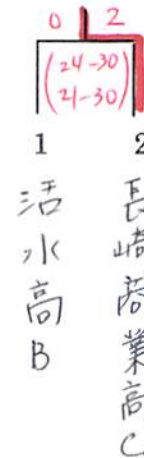 0 2
(24-30
21-30)
1 2
活水高B
長崎商業高C